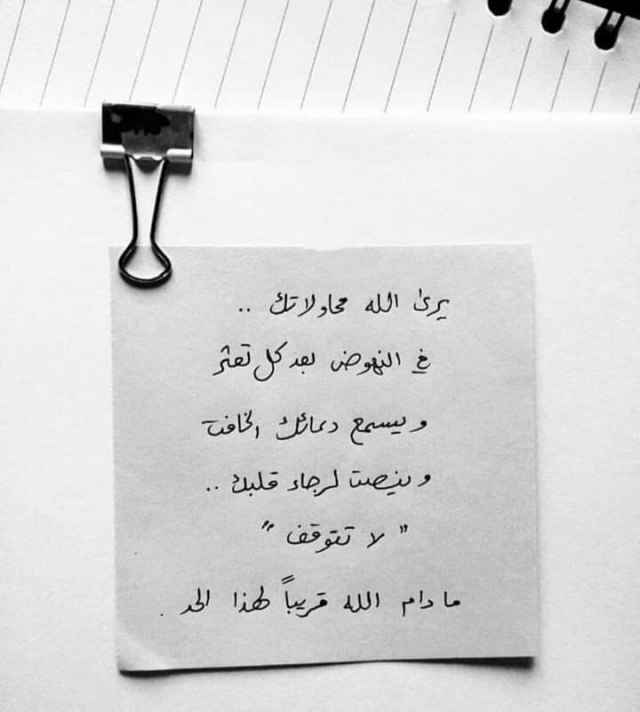 يرى الله محاولاتك ..
في النهوض بعد كل تعثر
ويسمع دعائك الخافت
وينصت لرجاء قلبك ..
" لا تتوقف "
ما دام الله قريباً لهذا الحد .